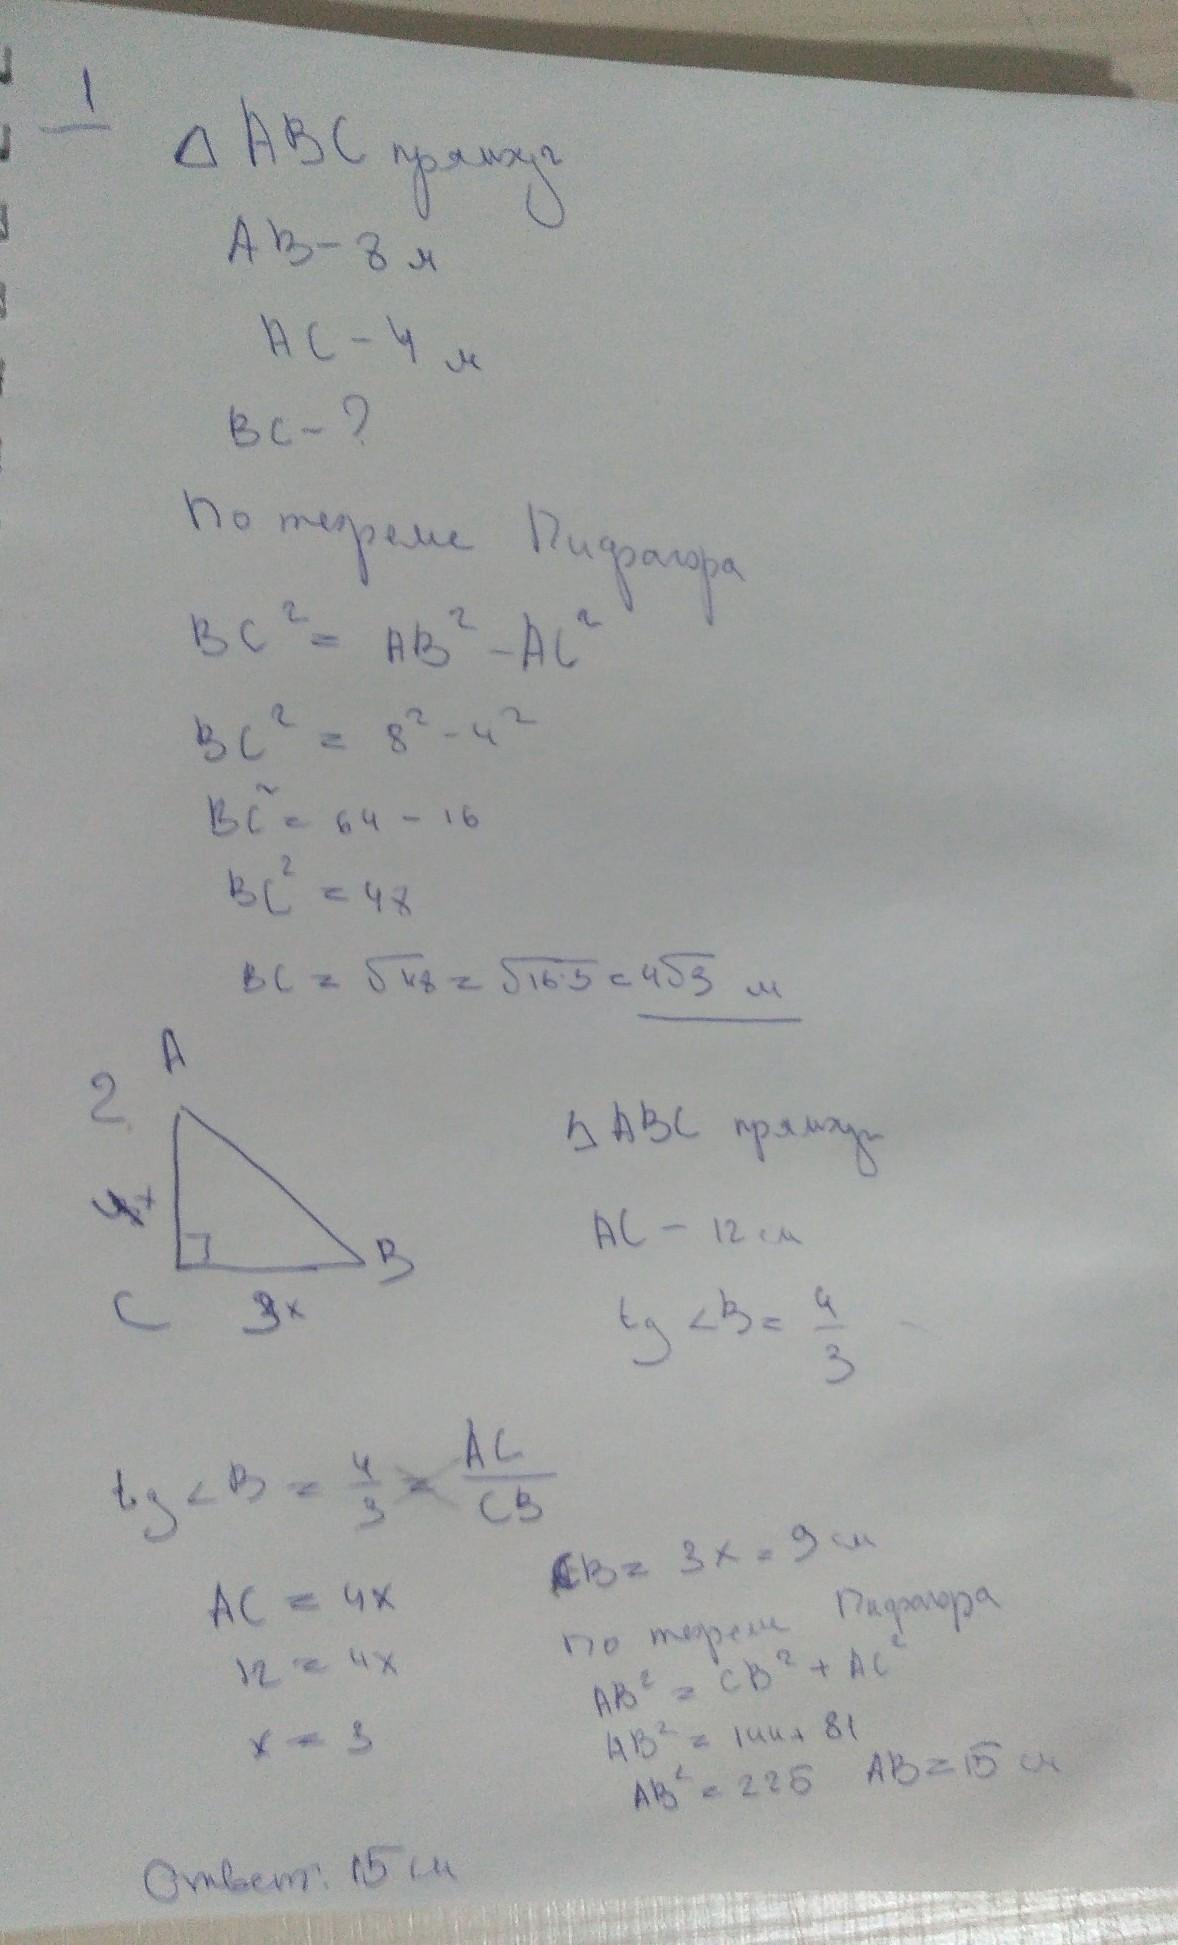 1
Δ ABC прямоуг
AB - 8 м
AC - 4 м
BC - ?
По теореме Пифагора
BC² = AB² - AC²
BC² = 8² - 4²
BC² = 64 - 16
BC² = 48
BC = √48 = √16·3 = 4√3 м
2
A
4x
C
3x
B
Δ ABC прямоуг
AC - 12 см
tg <B = 4/3
tg <B = 4/3 = AC/CB
AC = 4x
12 = 4x
x = 3
CB = 3x = 9 см
По теореме Пифагора
AB² = CB² + AC²
AB² = 144 + 81
AB² = 225 AB = 15 см
Ответ: 15 см